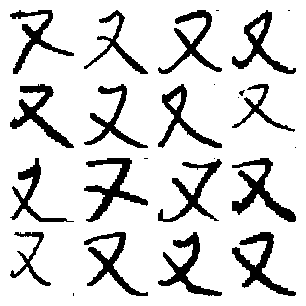 又又又又
又又又又
又又又又
又又又又